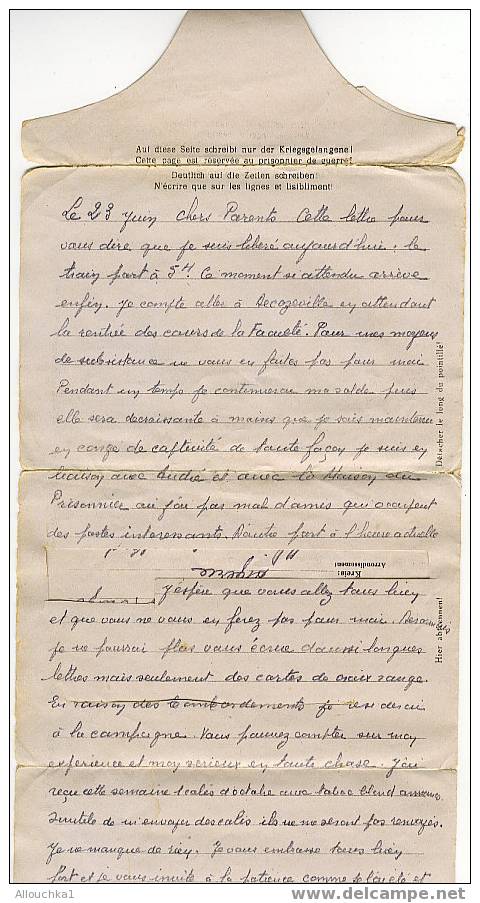 Auf diese Seite schreibt nur der Kriegsgefangene!
Cette page est réservée au prisonnier de guerre!
Deutlich auf die Zeilen schreiben!
N'écrire que sur les lignes et lisiblement!
Le 23 Juin Chers Parents Cette lettre pour
vous dire que je suis libéré aujourd'hui : le
train part à 5H. Ce moment si attendu arrive
enfin. Je compte aller à Decazeville en attendant
la rentrée des cours de la Faculté. Pour mes moyens
de subsistance ne vous en faites pas pour moi
Pendant un temps je continuerai ma solde puis
elle sera décroissante à moins que je sois maintenu
en congé de captivité de toute façon je suis en
liaison avec André et avec la Maison du
Prisonnier où j'ai pas mal d'amis qui occupent
des postes interessants. D'autre part à l'heure actuelle
Kreis:
Arrondissement:
J'espère que vous allez tous bien
et que vous ne vous en ferez pas pour moi. Désormais
je ne pourrai plus vous écrire d'aussi longues
lettres mais seulement des cartes de croix rouge.
En raison des bombardements je
à la campagne. Vous pouvez compter sur mon
expérience et mon sérieux en toute chose. J'ai
reçu cette semaine 1 colis d'octobre avec tabac blond
Inutile de m'envoyer des colis ils ne me seront pas renvoyés.
Je ne manque de rien. Je vous embrasse tous bien
fort et je vous invite à la patience comme je l'ai été et
Détacher le long du pointillé!
Hier abtrennen!
Allouchka1
delcampe.net